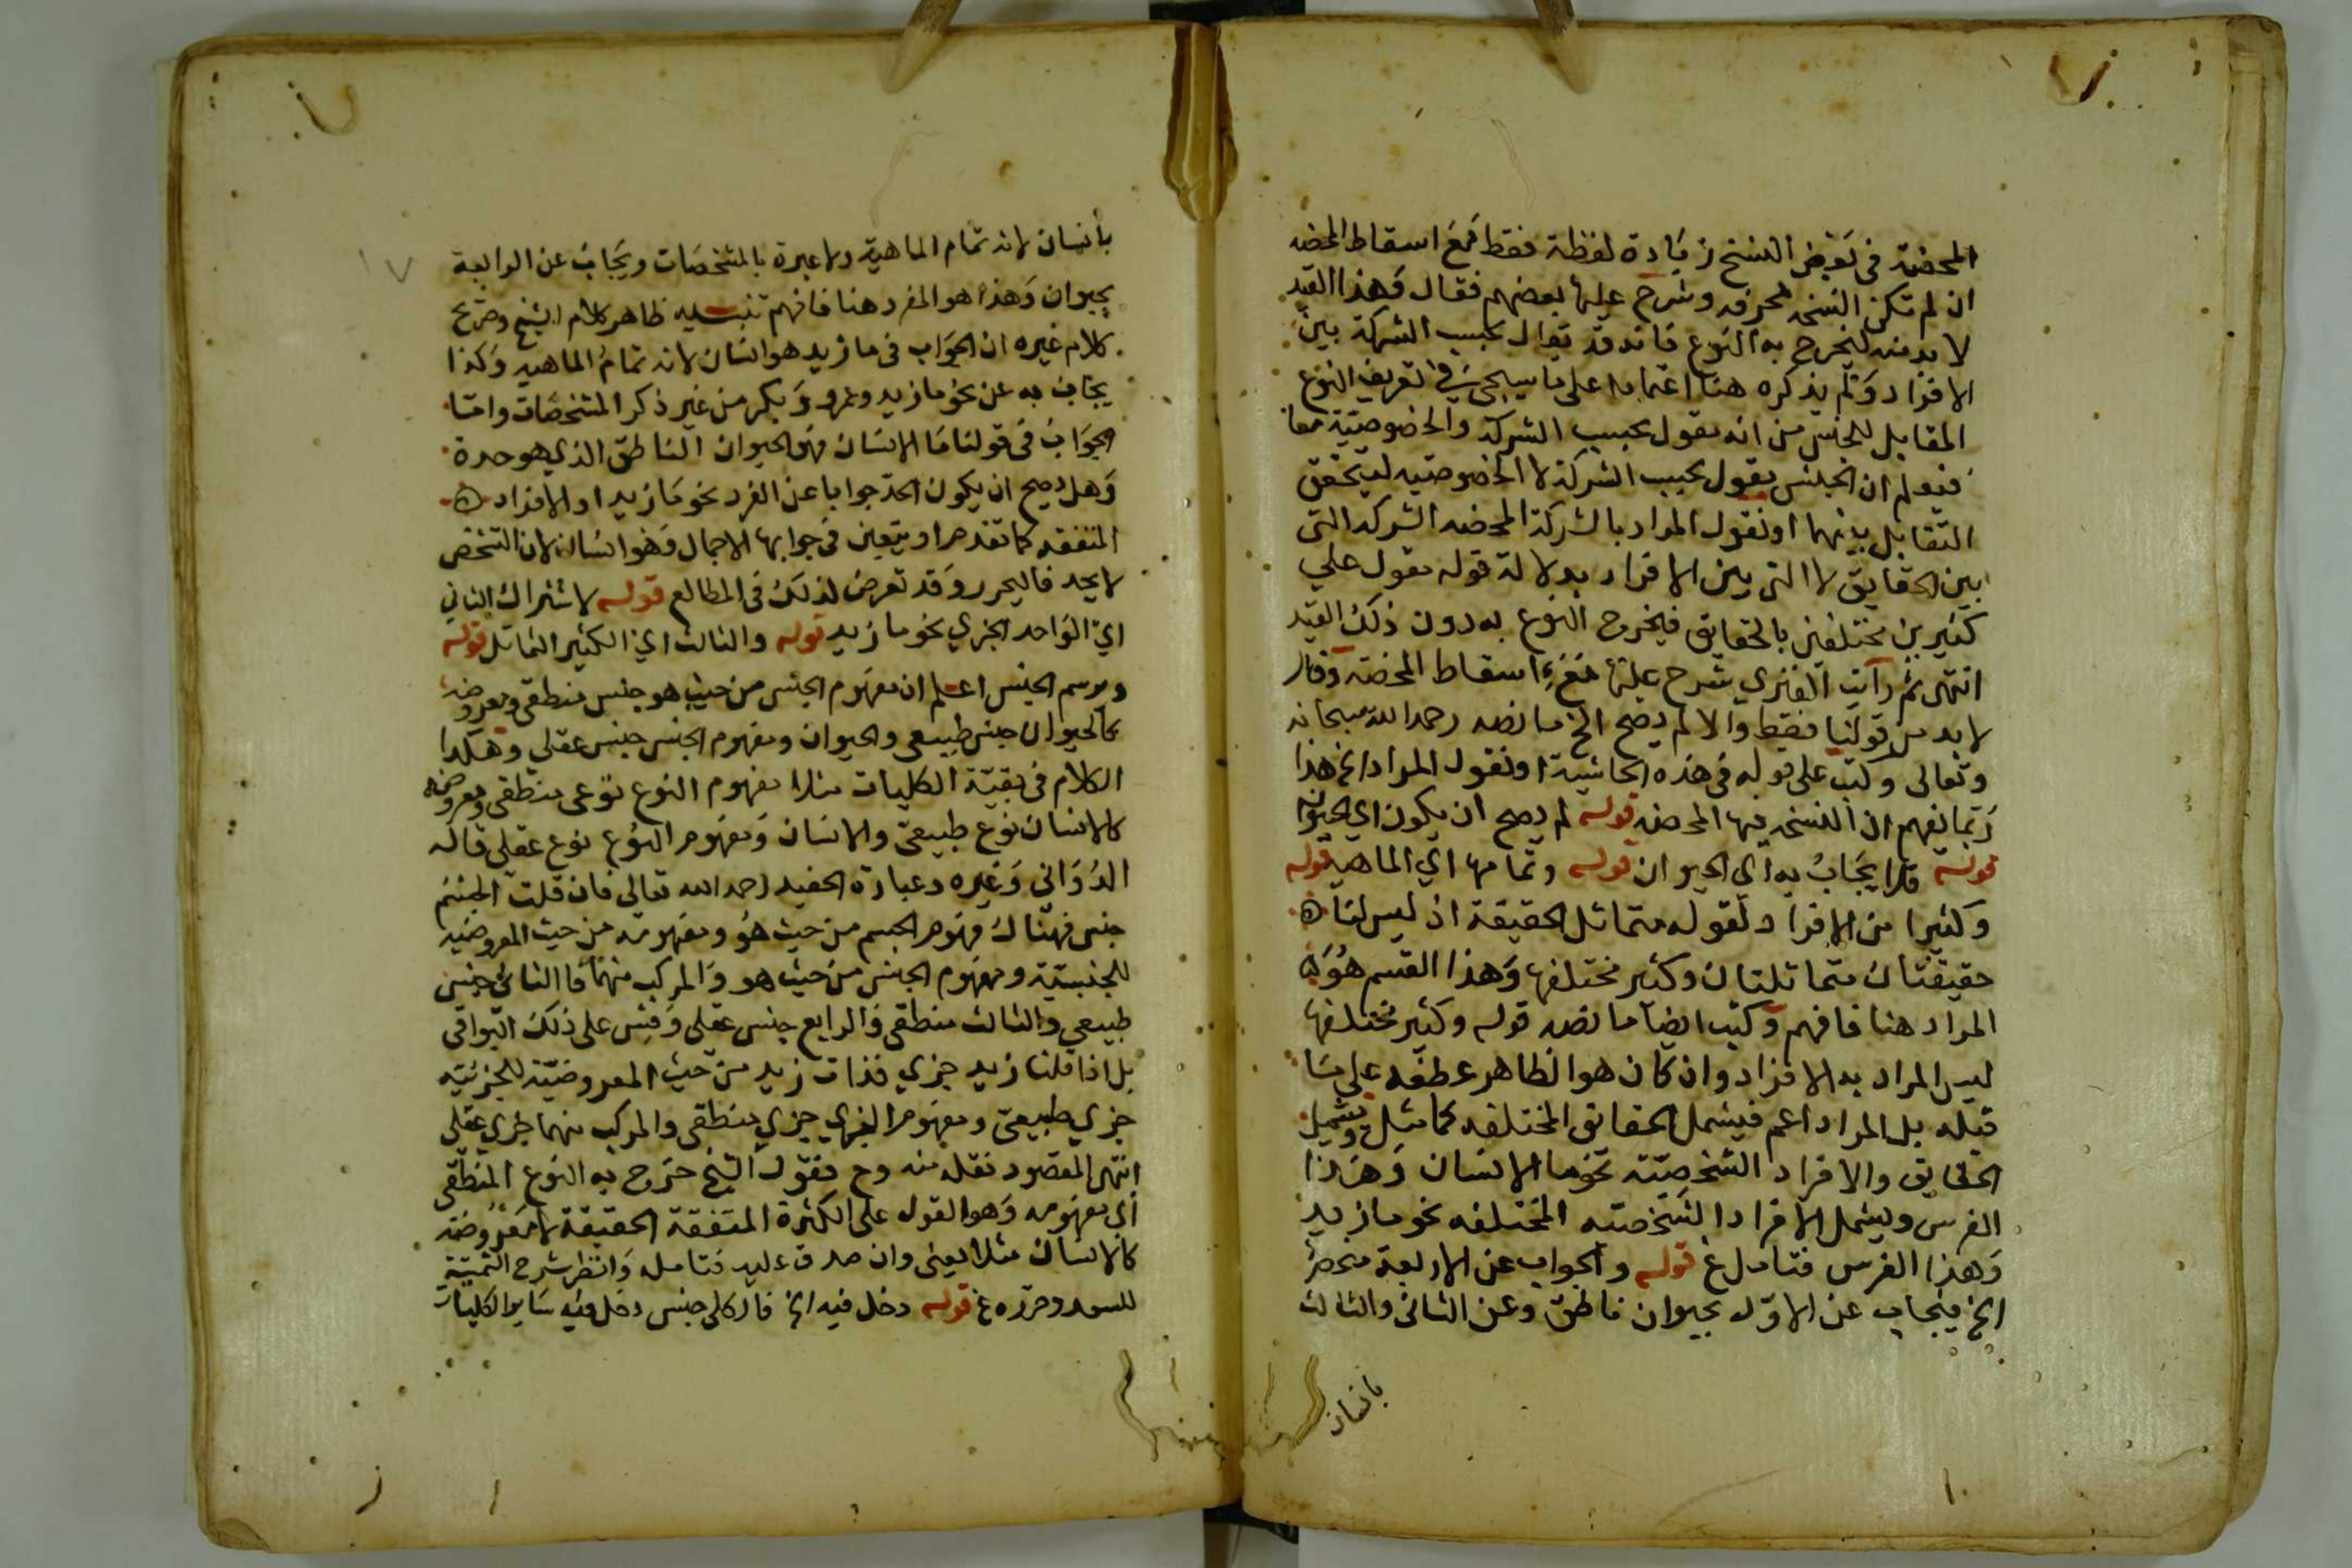 المحضة في بعض النسخ زيادة لفظة فقط فمع اسقاط المحضه
ان لم تكن النسخه محرفه وشرح عليها بعضهم فقال وهذا القيد
لا بد منه ليخرج به النوع فانه قد يقال بحسب الشركة بين
الافراد ولم يذكره هنا اعتمادا على ما سيجئ في تعريف النوع
المقابل للجنس من انه مقول بحسب الشركة والخصوصية معا
فيعلم ان الجنس مقول بحسب الشركة لا الخصوصيه ليتحقق
التقابل بينهما او نقول المراد بالشركة المحضه الشركه التي
بين الحقايق لا التي بين الافراد بدلالة قوله مقول علي
كثيرين مختلفين بالحقايق فيخرج النوع به دون ذلك القيد
انتهى ثم رأيت الفنري شرح عليها مع اسقاط المحضة وقال
لا بد من قولنا فقط والا لم يصح الخ ما نصه رحمه الله سبحانه
وتعالى وكتب على قوله في هذه الحاشية او نقول المراد الخ هذا
ربما يفهم ان النسخه فيها المحضه قوله لم يصح ان يكون اي الحيوان
قوله فلا يجاب به اي الحيوان قوله وتمامها اي الماهيه قوله
وكثيرا من الافراد لقوله متماثل الحقيقة اذ ليس لنا ه
حقيقتان متماثلتان وكثير مختلفها وهذا القسم هو
المراد هنا فافهم وكتب ايضا ما نصه قوله وكثير مختلفها
ليس المراد به الافراد وان كان هو الظاهر عطفه علي ما
قبله بل المراد اعم فيشمل الحقايق المختلفه كما مثل ويشمل
الحقايق والافراد الشخصيّة نحو ما الانسان وهذا
الفرس ويشمل الافراد الشخصيه المختلفه نحو ما زيد
وهذا الفرس فتامل غ قوله والجواب عن الاربعة منحصر
الخ فيجاب عن الاوّل بحيوان ناطق وعن الثاني والثالث
بانسان
بأنسان لانه تمام الماهية ولا عبرة بالمشخصات ويجاب عن الرابعة
بحيوان وهذا هو المفرد هنا فافهم تنبيه ظاهر كلام الشيخ وصريح
كلام غيره ان الجواب في ما زيد هو انسان لانه تمام الماهيه وكذا
يجاب به عن نحو ما زيد وعمرو وبكر من غير ذكر المشخصات وامّا
الجواب في قولنا ما الانسان فهو الحيوان الناطق الذي هو حدة
وهل يصح ان يكون الحد جوابا عن الفرد نحو ما زيد او الافراد ه
المتفقه كما تقدم او يتعين في جوابها الاجمال وهو انسان لان التشخص
لا يحد فاليحرر وقد تعرض لذلك في المطالع قوله لاشتراك الثاني
اي الواحد الجزي نحو ما زيد قوله والثالث اي الكثير المتماثل قوله
ويرسم الجنس اعلم ان مفهوم الجنس من حيث هو جنس منطقي ومعروضه
كالحيوان جنس طبيعي والحيوان ومفهوم الجنس جنس عقلي وهكذا
الكلام في بقيّة الكليات مثلا مفهوم النوع نوعي منطقي ومعروضه
كالانسان نوع طبيعي والانسان ومفهوم النوع نوع عقلي قاله
الدواني وغيره وعبارة الحفيد رحمه الله تعالى فان قلت الجسم
جنس فهناك مفهوم الجسم من حيث هو ومفهومه من حيث المعروضيه
للجنسيّة ومفهوم الجنس من حيث هو والمركب منهما فالثاني جنس
طبيعي والثالث منطقي والرابع جنس عقلي وقس على ذلك البواقي
بل اذا قلنا زيد جزي فذات زيد من حيث المعروضيّة للجزئيّه
جزي طبيعي ومفهوم الجزي جزي منطقي والمركب منهما جزي عقلي
انتهى المقصود نقله منه وح فقول الشيخ خرج به النوع المنطقي
اي مفهومه وهو المقول على الكثرة المتفقة الحقيقة لا معروضه
كالانسان مثلا يعني وان صدق عليه فتامله وانظر شرح الشمسيّة
للسعد وحرّره غ قوله دخل فيه الخ قال كلي جنس دخل فيه ساير الكليات